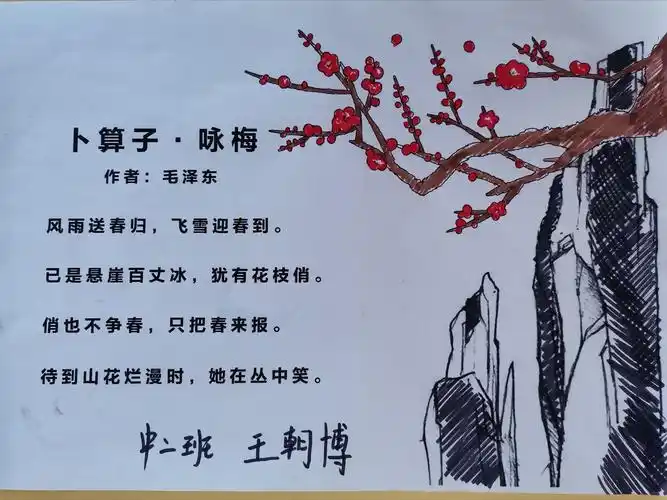 卜算子·咏梅
作者：毛泽东
风雨送春归，飞雪迎春到。
已是悬崖百丈冰，犹有花枝俏。
俏也不争春，只把春来报。
待到山花烂漫时，她在丛中笑。
中二班 王朝博